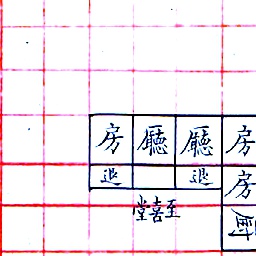 房廳廳房
退退房
至喜堂